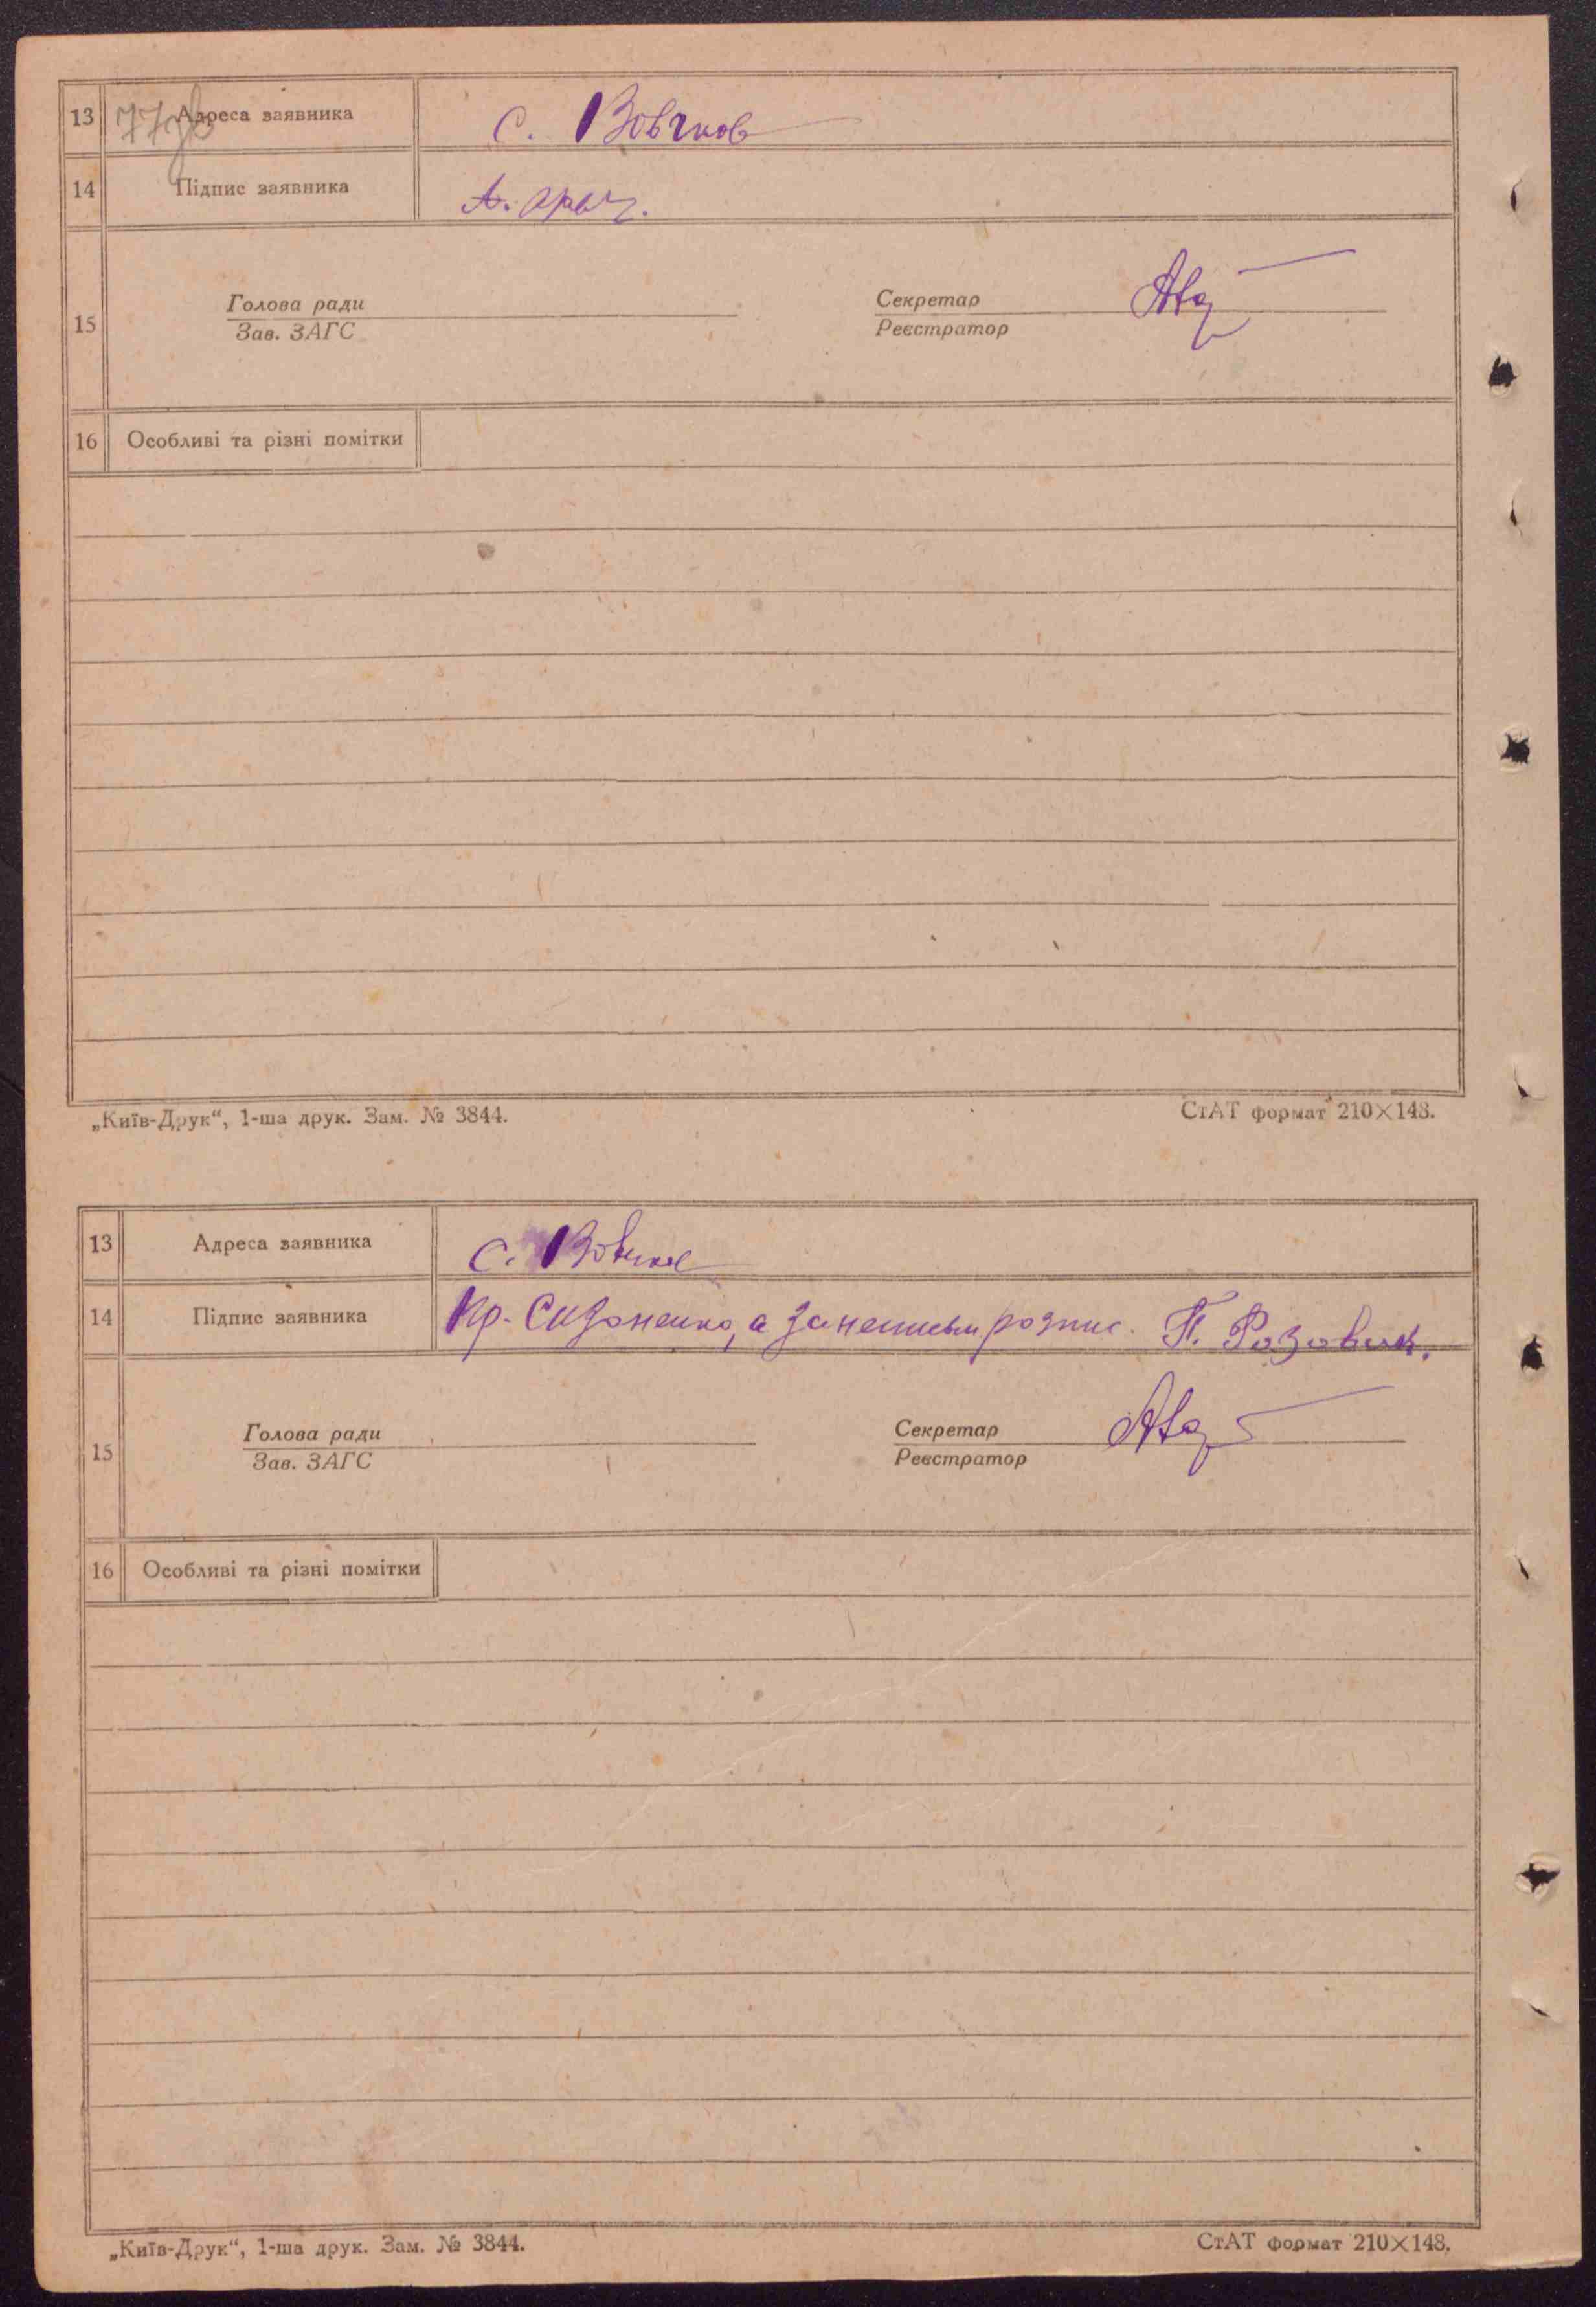 13 Адреса заявника с. Вовчков
77зв
14 Підпис заявника
15 Голова ради Секретар
Зав. ЗАГС Реєстратор
16 Особливі та різні помітки
„Київ-Друк“, 1-ша друк. Зам. № 3844. СтАТ формат 210×148.
13 Адреса заявника с. Вовчков
14 Підпис заявника Кр. Сизоненко, а за неписьм розпис. П. Розовик.
15 Голова ради Секретар
Зав. ЗАГС Реєстратор
16 Особливі та різні помітки
„Київ-Друк“, 1-ша друк. Зам. № 3844. СтАТ формат 210×148.